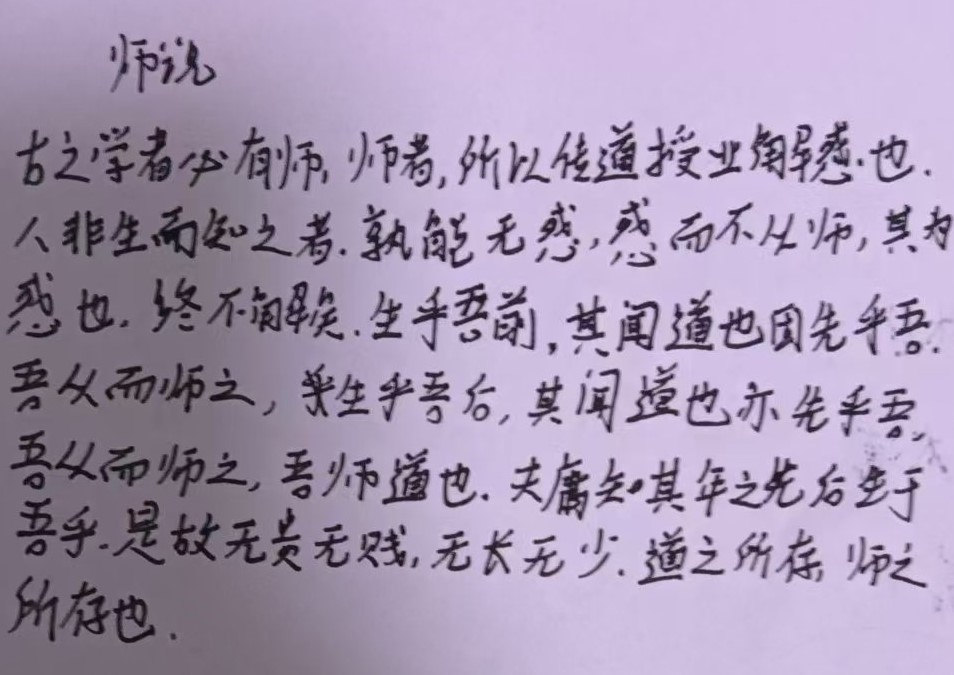 师说
古之学者必有师,师者,所以传道授业解惑也.
人非生而知之者.孰能无惑,惑而不从师,其为
惑也.终不解矣.生乎吾前,其闻道也固先乎吾.
吾从而师之,生乎吾后,其闻道也亦先乎吾,
吾从而师之,吾师道也.夫庸知其年之先后生于
吾乎.是故无贵无贱,无长无少.道之所存,师之
所存也.